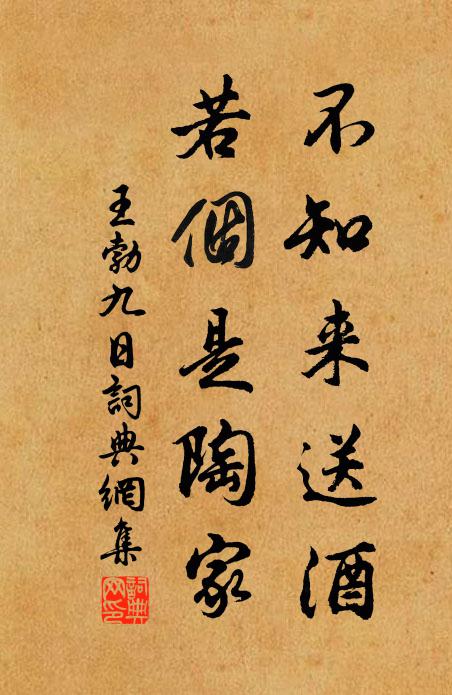 不知来送酒
若個是陶家
王勃九日詞典網集
詞典
网印